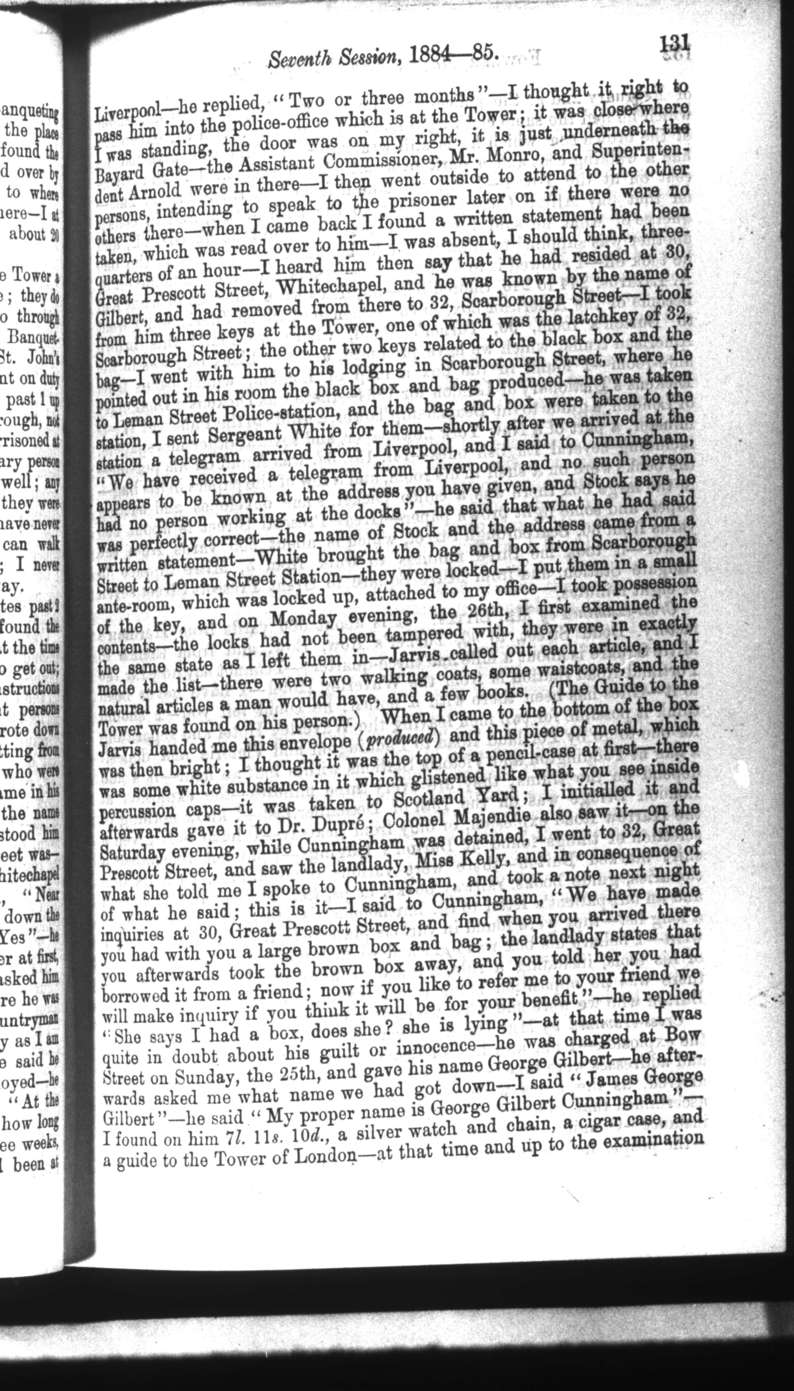 Seventh Session, 1884—85.
131
Liverpool—he replied, "Two or three months"—I thought it right to
pass him into the police-office which is at the Tower; it was close where
I was standing, the door was on my right, it is just underneath the
Bayard Gate—the Assistant Commissioner, Mr. Monro, and Superinten-
dent Arnold were in there—I then went outside to attend to the other
persons, intending to speak to the prisoner later on if there were no
others there—when I came back I found a written statement had been
taken, which was read over to him—I was absent, I should think, three-
quarters of an hour—I heard him then say that he had resided at 30,
Great Prescott Street, Whitechapel, and he was known by the name of
Gilbert, and had removed from there to 32, Scarborough Street—I took
from him three keys at the Tower, one of which was the latchkey of 32,
Scarborough Street; the other two keys related to the black box and the
bag—I went with him to his lodging in Scarborough Street, where he
pointed out in his room the black box and bag produced—he was taken
to Leman Street Police-station, and the bag and box were taken to the
station, I sent Sergeant White for them—shortly after we arrived at the
station a telegram arrived from Liverpool, and I said to Cunningham,
"We have received a telegram from Liverpool, and no such person
appears to be known at the address you have given, and Stock says he
had no person working at the docks"—he said that what he had said
was perfectly correct—the name of Stock and the address came from a
written statement—White brought the bag and box from Scarborough
Street to Leman Street Station—they were locked—I put them in a small
ante-room, which was locked up, attached to my office—I took possession
of the key, and on Monday evening, the 26th, I first examined the
contents—the locks had not been tampered with, they were in exactly
the same state as I left them in—Jarvis called out each article, and I
made the list—there were two walking coats, some waistcoats, and the
natural articles a man would have, and a few books. (The Guide to the
Tower was found on his person.) When I came to the bottom of the box
Jarvis handed me this envelope (produced) and this piece of metal, which
was then bright; I thought it was the top of a pencil-case at first—there
was some white substance in it which glistened like what you see inside
percussion caps—it was taken to Scotland Yard; I initialled it and
afterwards gave it to Dr. Dupré; Colonel Majendie also saw it—on the
Saturday evening, while Cunningham was detained, I went to 32, Great
Prescott Street, and saw the landlady, Miss Kelly, and in consequence of
what she told me I spoke to Cunningham, and took a note next night
of what he said; this is it—I said to Cunningham, "We have made
inquiries at 30, Great Prescott Street, and find when you arrived there
you had with you a large brown box and bag; the landlady states that
you afterwards took the brown box away, and you told her you had
borrowed it from a friend; now if you like to refer me to your friend we
will make inquiry if you think it will be for your benefit"—he replied
"She says I had a box, does she? she is lying"—at that time I was
quite in doubt about his guilt or innocence—he was charged at Bow
Street on Sunday, the 25th, and gave his name George Gilbert—he after-
wards asked me what name we had got down—I said "James George
Gilbert"—he said "My proper name is George Gilbert Cunningham"—
I found on him 7l. 11s. 10d., a silver watch and chain, a cigar case, and
a guide to the Tower of London—at that time and up to the examination